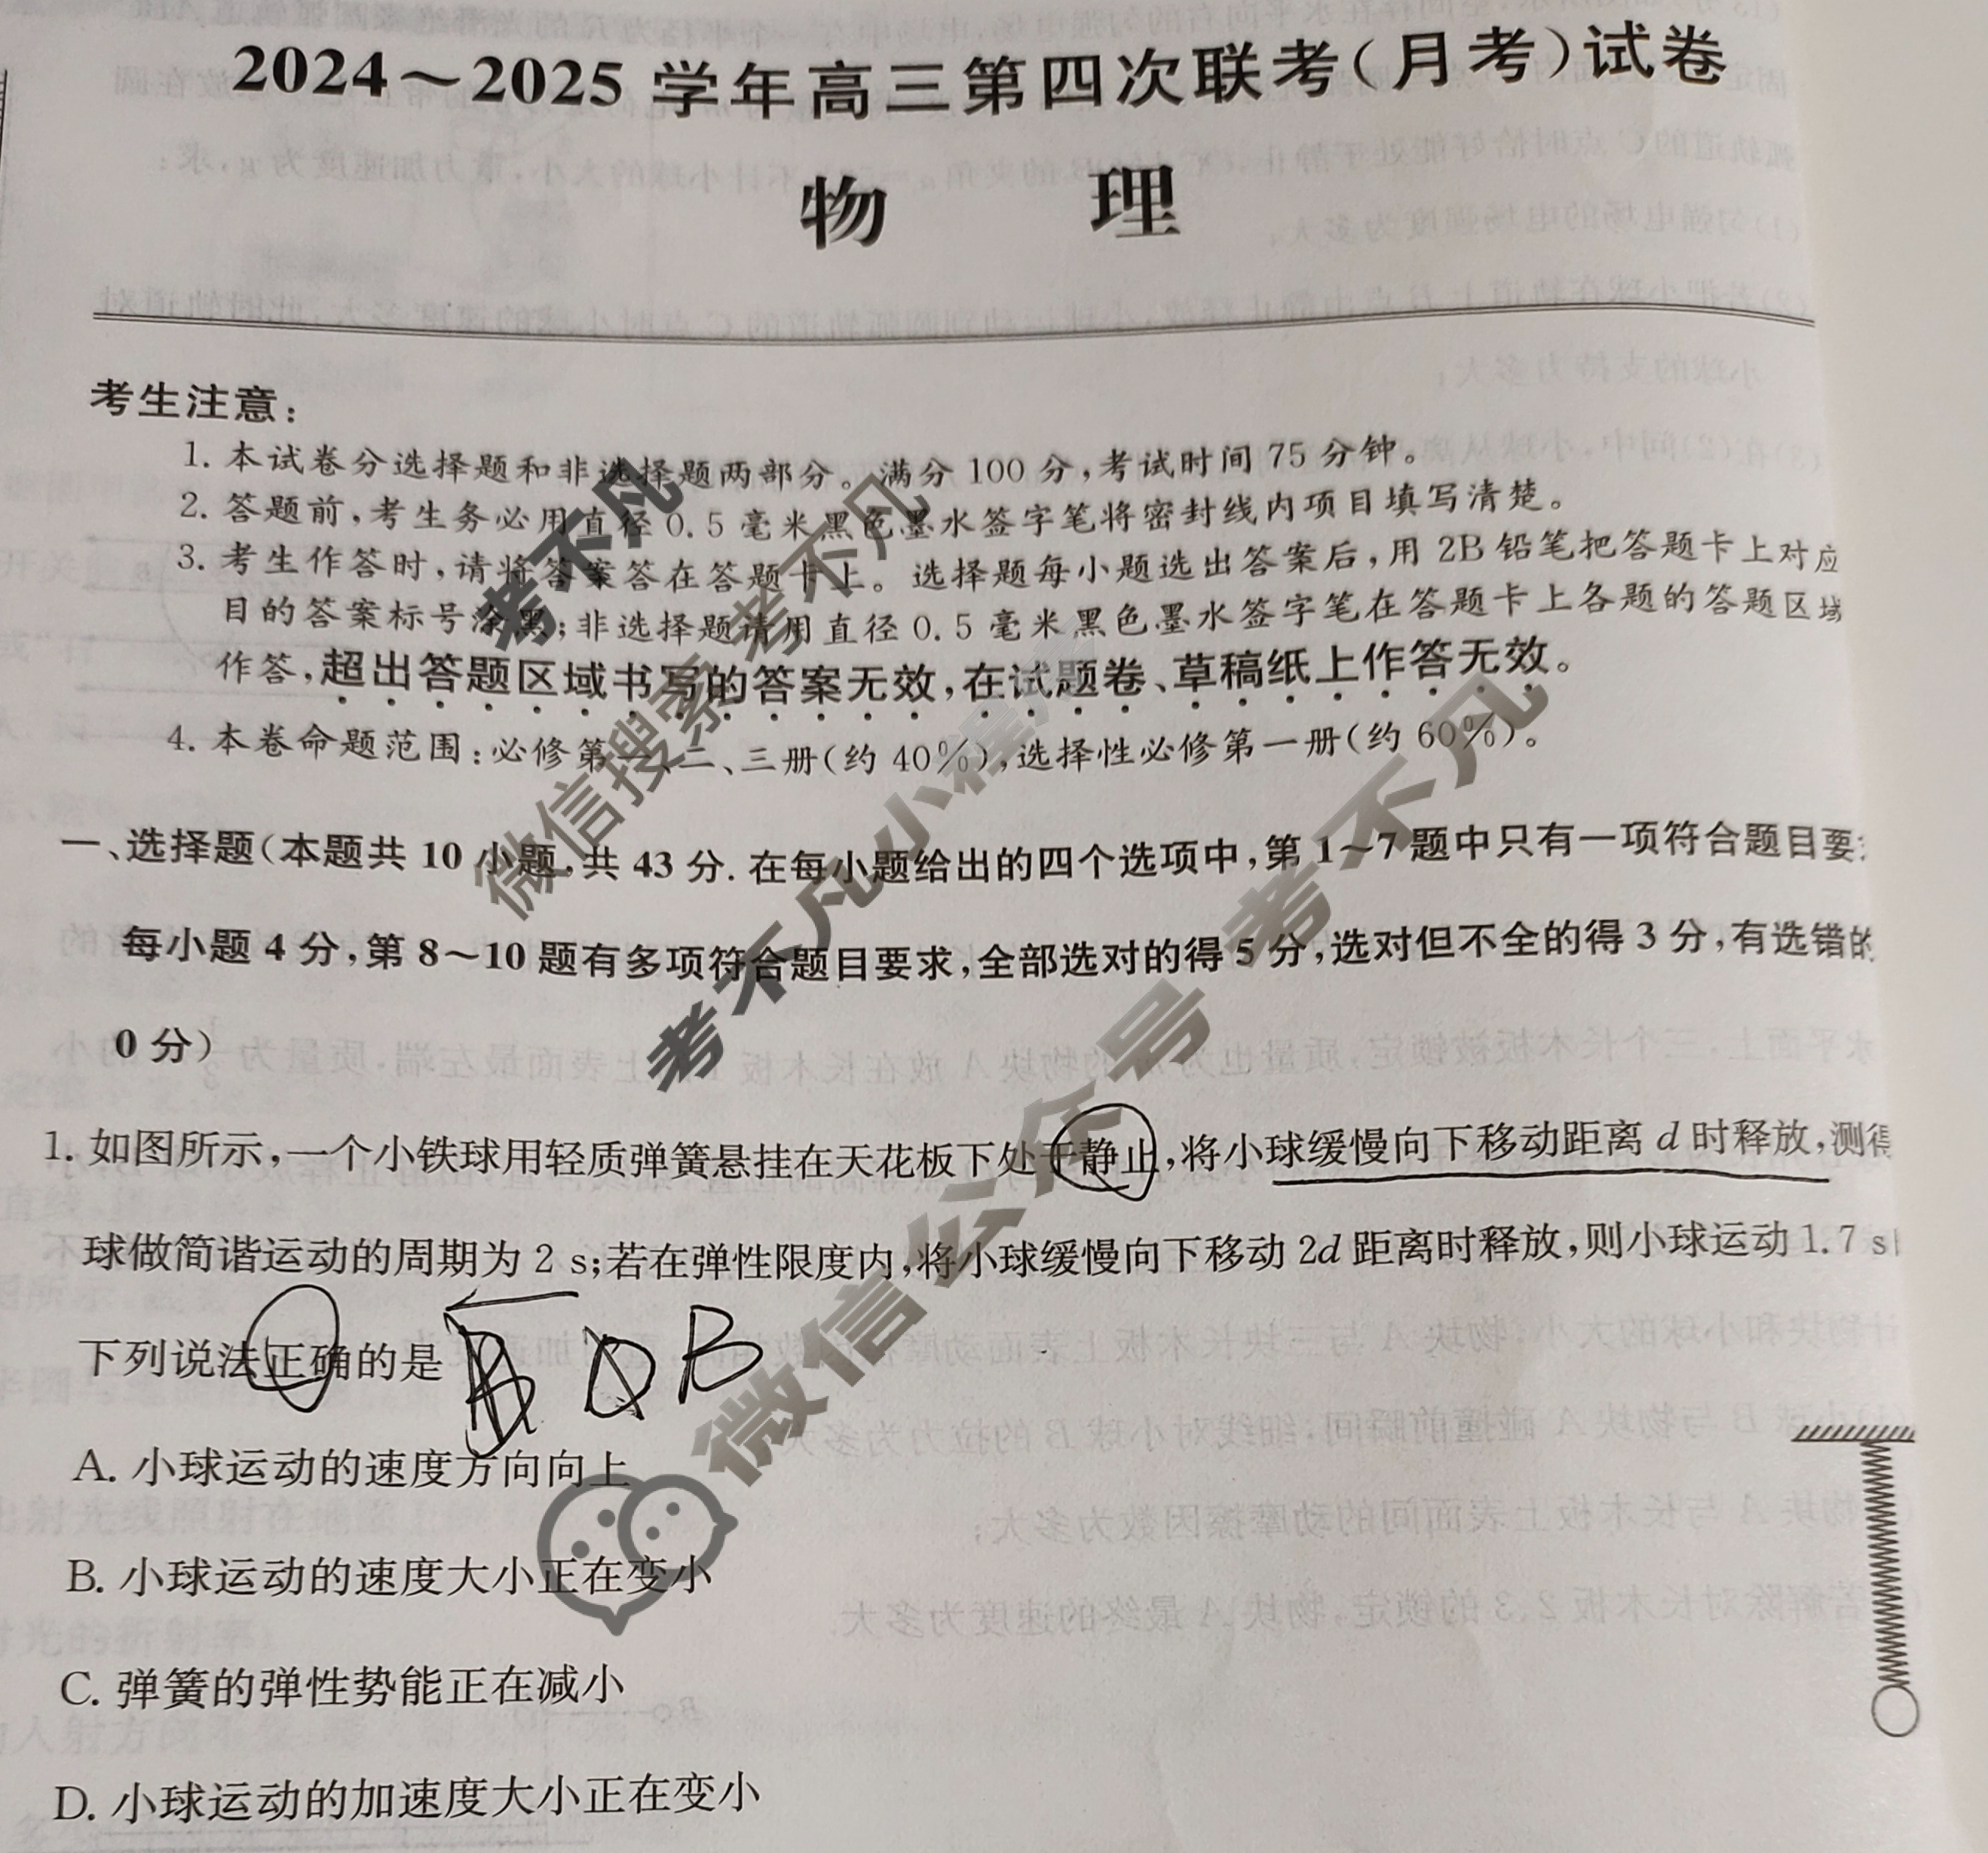 2024～2025 学年高三第四次联考(月考)试卷
物 理
考生注意:
1. 本试卷分选择题和非选择题两部分。满分 100 分,考试时间 75 分钟。
2. 答题前,考生务必用直径 0.5 毫米黑色墨水签字笔将密封线内项目填写清楚。
3. 考生作答时,请将答案答在答题卡上。选择题每小题选出答案后,用 2B 铅笔把答题卡上对应
目的答案标号涂黑;非选择题请用直径 0.5 毫米黑色墨水签字笔在答题卡上各题的答题区域
作答,超出答题区域书写的答案无效,在试题卷、草稿纸上作答无效。
4. 本卷命题范围:必修第一、二、三册(约 40%),选择性必修第一册(约 60%)。
一、选择题(本题共 10 小题,共 43 分. 在每小题给出的四个选项中,第 1～7 题中只有一项符合题目要
每小题 4 分,第 8～10 题有多项符合题目要求,全部选对的得 5 分,选对但不全的得 3 分,有选错的
0 分)
1. 如图所示,一个小铁球用轻质弹簧悬挂在天花板下处于静止,将小球缓慢向下移动距离 d 时释放,测得
球做简谐运动的周期为 2 s;若在弹性限度内,将小球缓慢向下移动 2d 距离时释放,则小球运动 1.7 s
下列说法正确的是
B
A. 小球运动的速度方向向上
B. 小球运动的速度大小正在变小
C. 弹簧的弹性势能正在减小
D. 小球运动的加速度大小正在变小
考不凡
微信搜索考不凡
考不凡小程序
微信公众号 考不凡